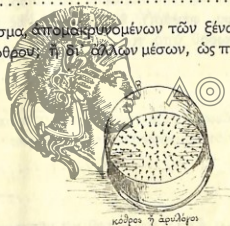 σμα, ἀπομακρυνομένων τῶν ξένα
όθρου, ἢ δι' ἄλλων μέσων, ὡς π
ΑΘ
κόθρος ἢ ἀρυλόγος